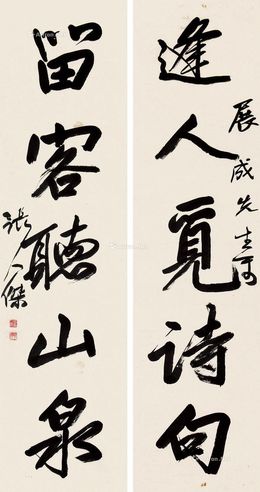 逢人覓诗句
展成先生
留客聽山泉
张人傑